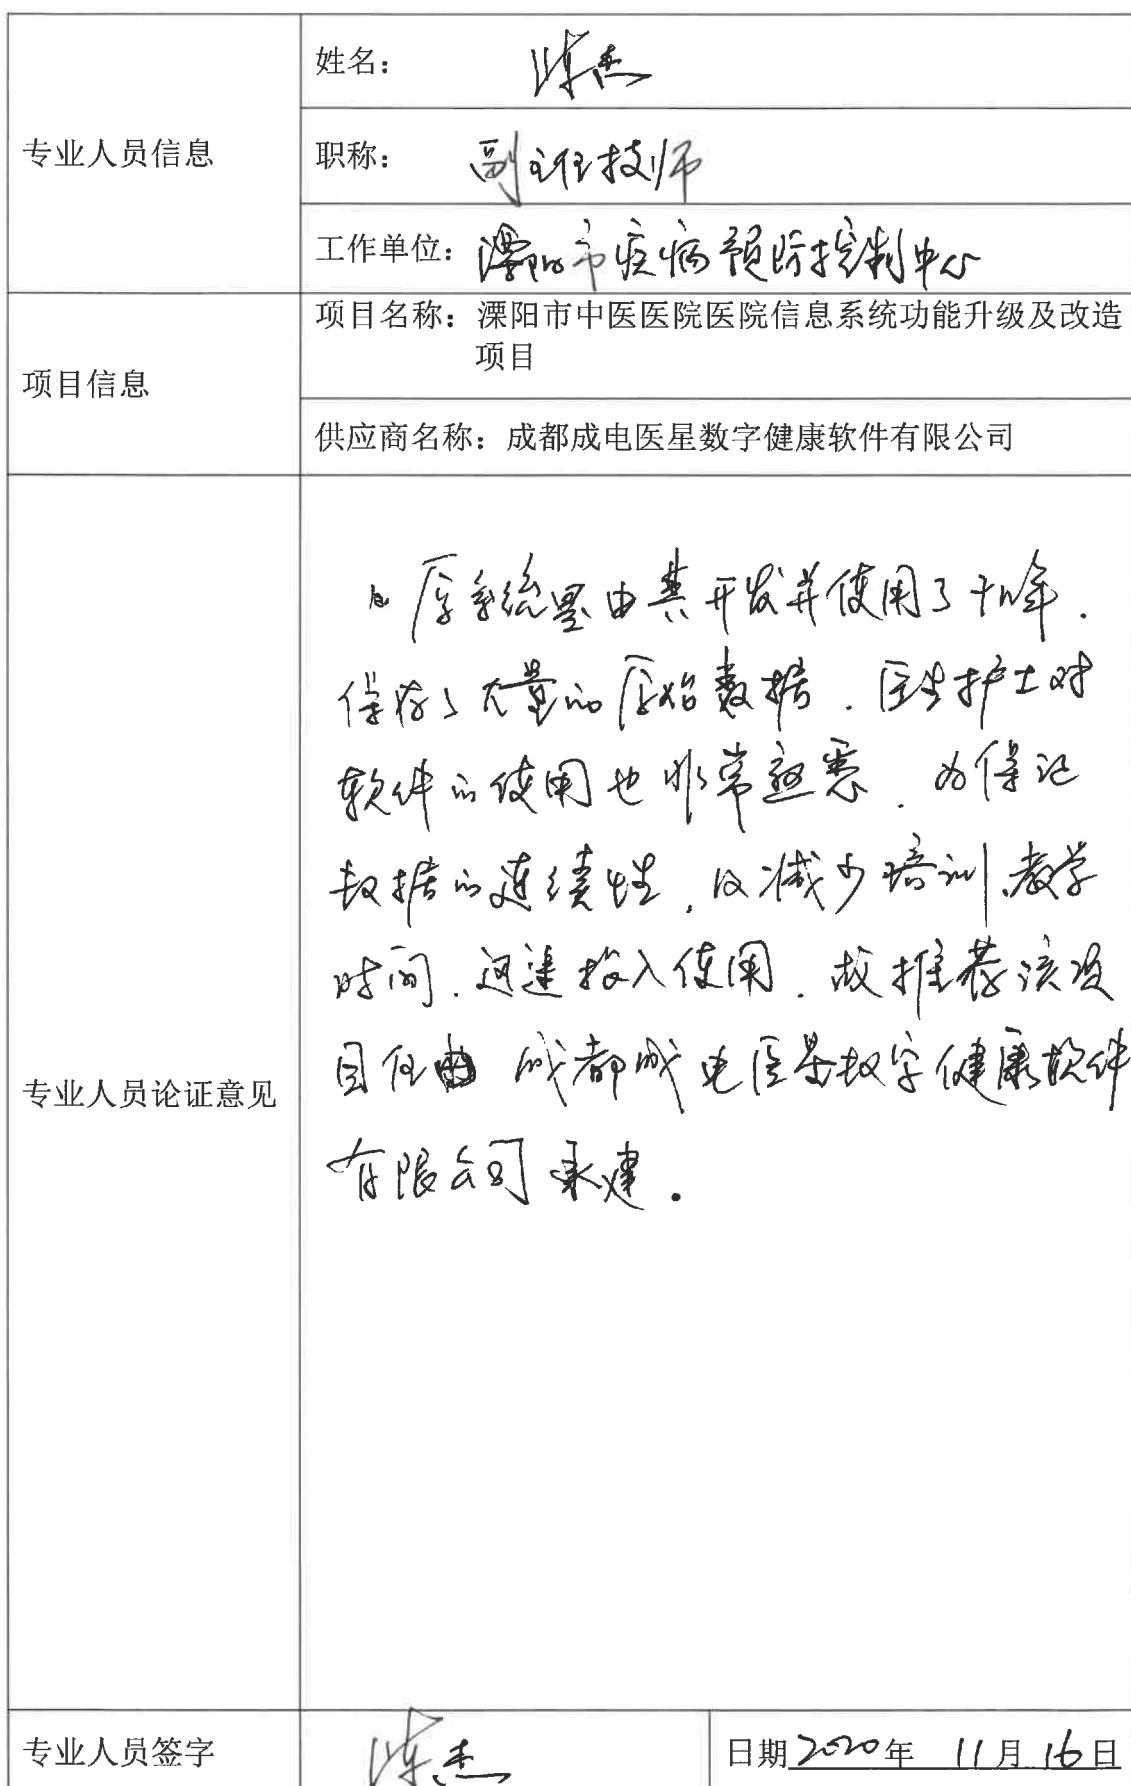 姓名： 陈杰
专业人员信息
职称： 副主任技师
工作单位：溧阳市疾病预防控制中心
项目名称：溧阳市中医医院医院信息系统功能升级及改造
项目
项目信息
供应商名称：成都成电医星数字健康软件有限公司
原系统是由其开发并使用了十几年．
保存了大量的原始数据．医生护士对
软件的使用也非常熟悉．为保证
数据的连续性，以减少培训、教学
时间．迅速投入使用．故推荐该项
目 由 成都成电医星数字健康软件
有限公司承建．
专业人员论证意见
专业人员签字 陈杰 日期2020年 11月16日